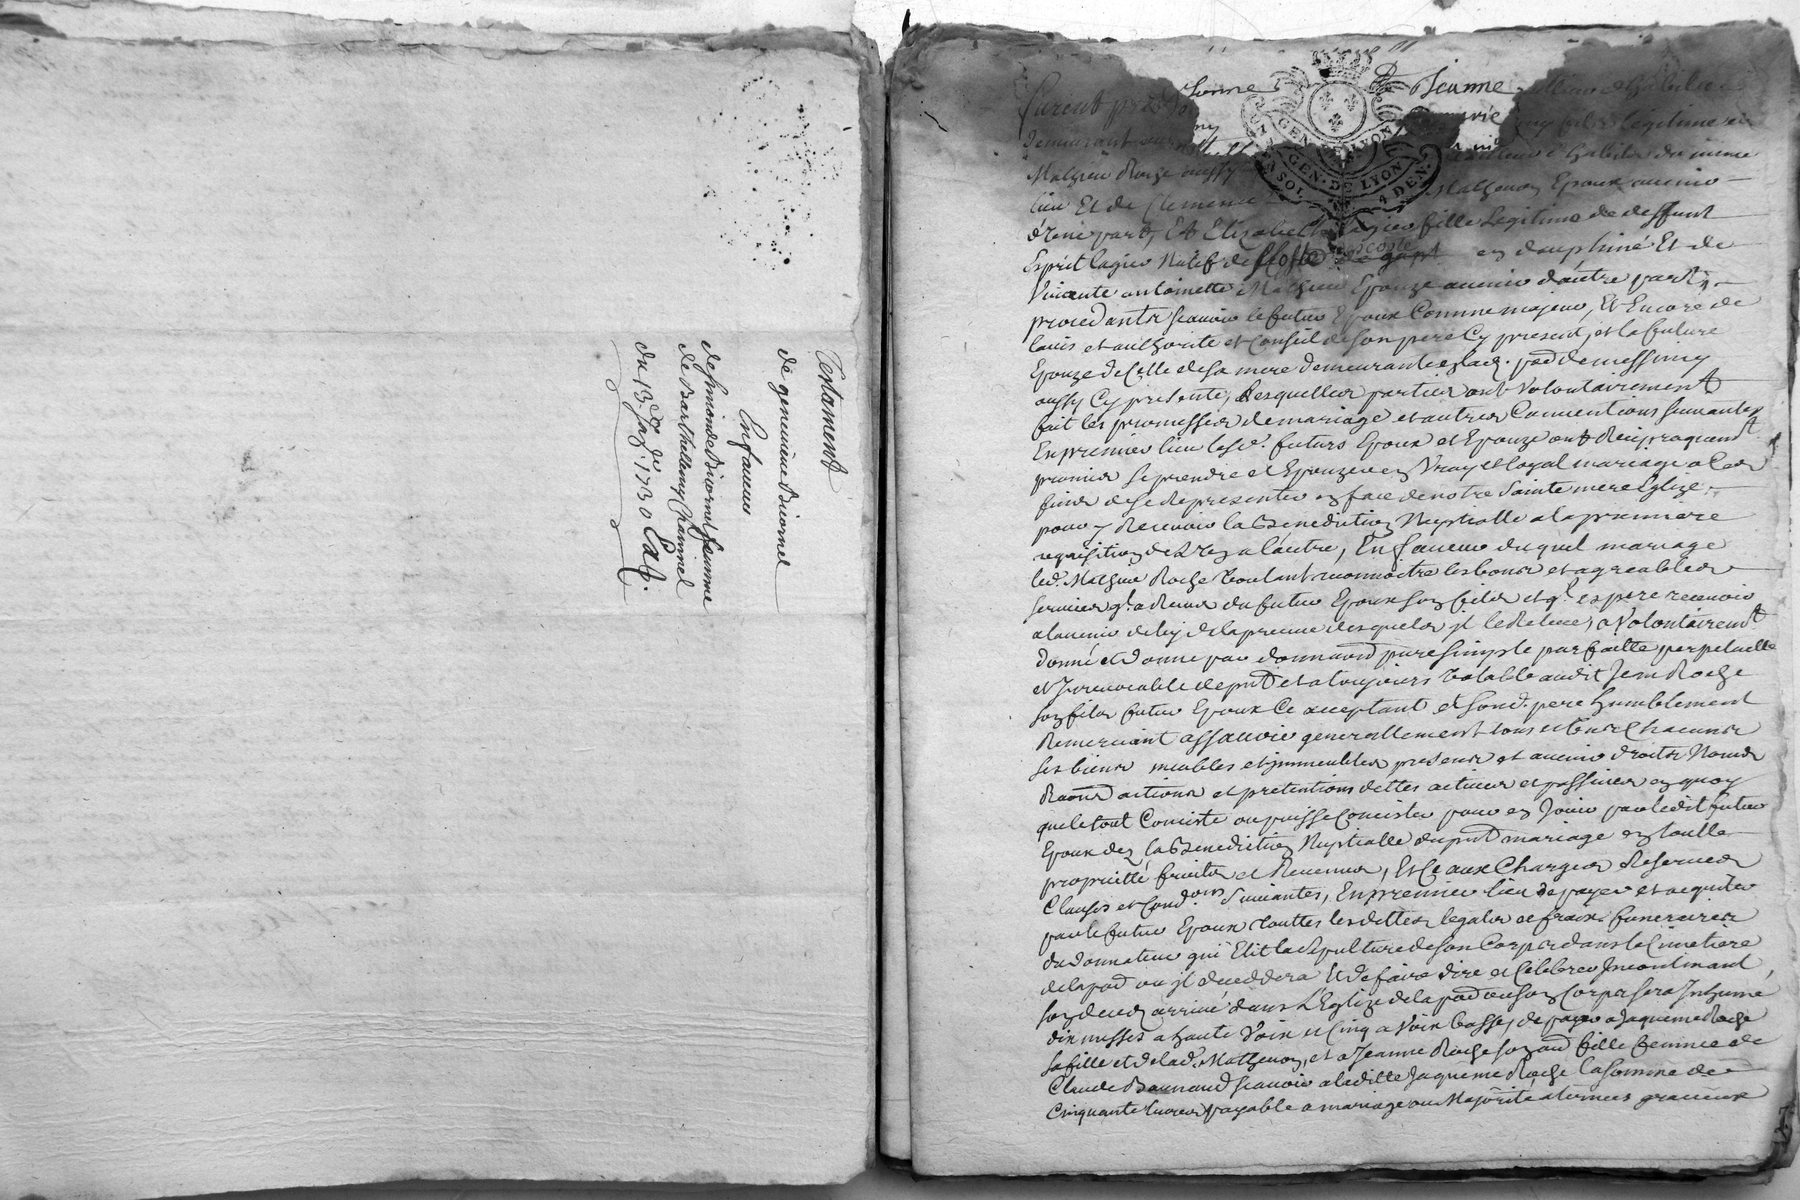 Testament
de genevieve Buornel
En faveur
de simonde Buornel femme
de Barthellemy Channel
du 13e. Jer. 1730 Exp.
Furent presens
Sonne
Jeanne
GEN. DE LYON
SOL
GEN. DE LYON
4 DEN.
demeurant
legitime de
Mathieu Roche aussy
habitant du meme
lieu Et de Clemence
Mathevon Epoux avenir
d'Une part, Et Elizabeth Lagier fille Legitime de deffunt
Esprit Lagier Natif de en dauphiné Et de
Vincente antoinette Mathieu Epouze avenir d'autre part,
procedantz scavoir le futur Epoux Comme majeur, Et Encore de
lavis et authorité et Conseil de son pere Cy present, et la future
Epouze de Celle de sa mere demeurante en lad. parr. de messimy
aussy Cy presente, Lesquelles parties ont Volontairement
fait les promesses de mariage et autres Conventions suivantes
En premier lieu lesd. futurs Epoux et Epouze ont Reciproquemt.
promis se prendre et Epouzer en Vray et loyal mariage a Ces
fins de se Representer en face de notre Sainte mere Eglize
pour y Recevoir la Benediction Nuptialle a la premiere
requisition de L'un a l'autre, En faveur duquel mariage
led. Mathieu Roche voulant reconnoitre les bons et agreables
services ql. a Receu du futur Epoux son fils et ql. espere recevoir
a lavenir de luy de la preuve desquels jl le Releve, a Volontairemt.
donné et donne par donnaon pure Simple parfaitte perpetuelle
et Irrevocable depnt. et a toujours valable audit Jean Roche
son fils futur Epoux Ce acceptant et sond. pere humblement
Remerciant assavoir generallement tous et Uns Chacuns
ses biens meubles et jmmeubles presens et avenir droitz Noms
Raons actions et pretentions dettes actives et passives en quoy
que le tout Conciste ou puisse Concister pour en Jouir par ledit futur
Epoux dez la Benediction Nuptialle dupnt. mariage en toutte
proprietté fruits et Revenus, Et Ce aux Charges Reserves
Clauses et Cond.ons Suivantes, En premier lieu de payer et acquitter
par le futur Epoux touttes les dettes legats et fraix funeraires
du donnateur qui Elit la Sepulture de son Corps dans le Cimetiere
de la parr. ou jl deceddera Et de faire dire et Celebrer Incontinant
son deces arrivé dans L'Eglize de la parr. ou son Corps sera Inhumé
dix messes a haute Voix et Cinq a Voix basse, de payer a Jaqueme Roche
sa fille et de lad. Mathevon, et a Jeanne Roche son aud. fille femme de
Claude Bonnand scavoir a laditte Jaqueme Roche la somme de
Cinquante livres payable a mariage ou Majorité a termes gracieux